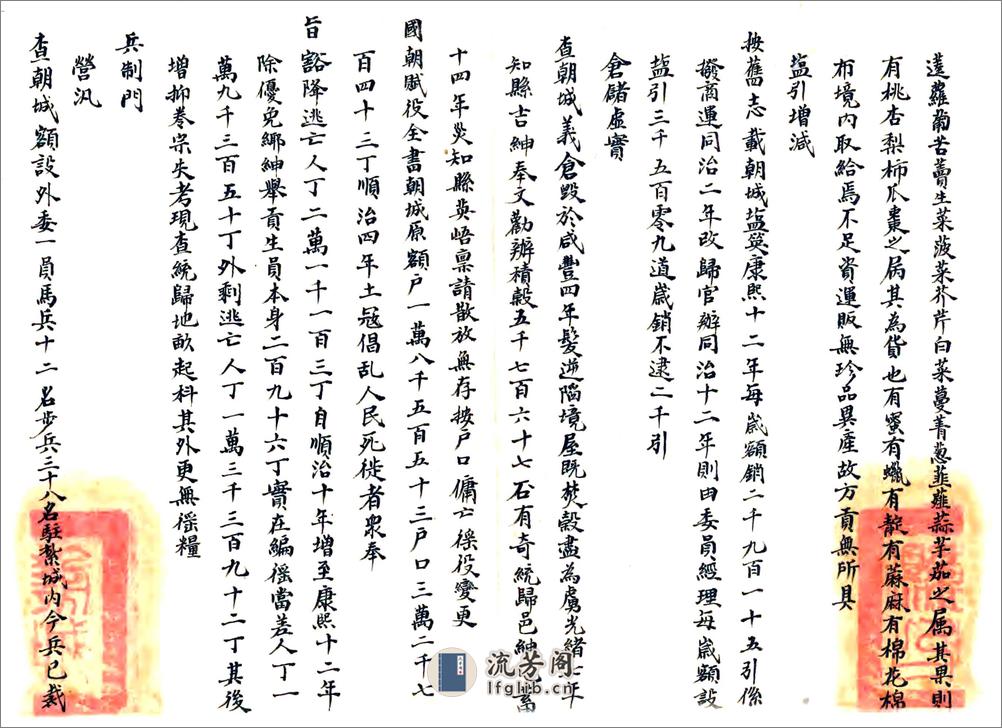 蓬蘿蔔苦蕒生菜菠菜芥芹白菜蔓菁葱韭薤蒜芋茄之属其果則
有桃杏梨柿瓜棗之属其為貨也有蜜有蠟有靛有蔴麻有棉花棉
布境内取給焉不足資運販無珍品異產故方貢無所具
塩引增減
按舊志載朝城塩筴康熙十二年每歲額銷二千九百一十五引係
撥商運同治二年改歸官辦同治十二年則由委員經理每歲額設
塩引三千五百零九道歲銷不逮二千引
倉儲虛實
查朝城義倉毀於咸豐四年髮逆陷境屋既焚穀盡為虜光緒七年
知縣吉紳奉文勸辦積穀五千七百六十七石有奇統歸邑紳
十四年災知縣英悟禀請散放無存按戶口傭亡徭役變更
國朝賦役全書朝城原額戶一萬八千五百五十三戶口三萬二千七
百四十三丁順治四年土冦倡乱人民死徙者衆奉
旨豁降逃亡人丁二萬一千一百三丁自順治十年增至康熙十二年
除優免鄉紳舉貢生員本身二百九十六丁實在編徭當差人丁一
萬九千三百五十丁外剩逃亡人丁一萬三千三百九十二丁其後
增抑卷宗失考現查統歸地畝起科其外更無徭糧
兵制門
營汛
查朝城額設外委一員馬兵十二名步兵三十八名駐紮城内今兵已裁
流芳阁
lfglib.cn